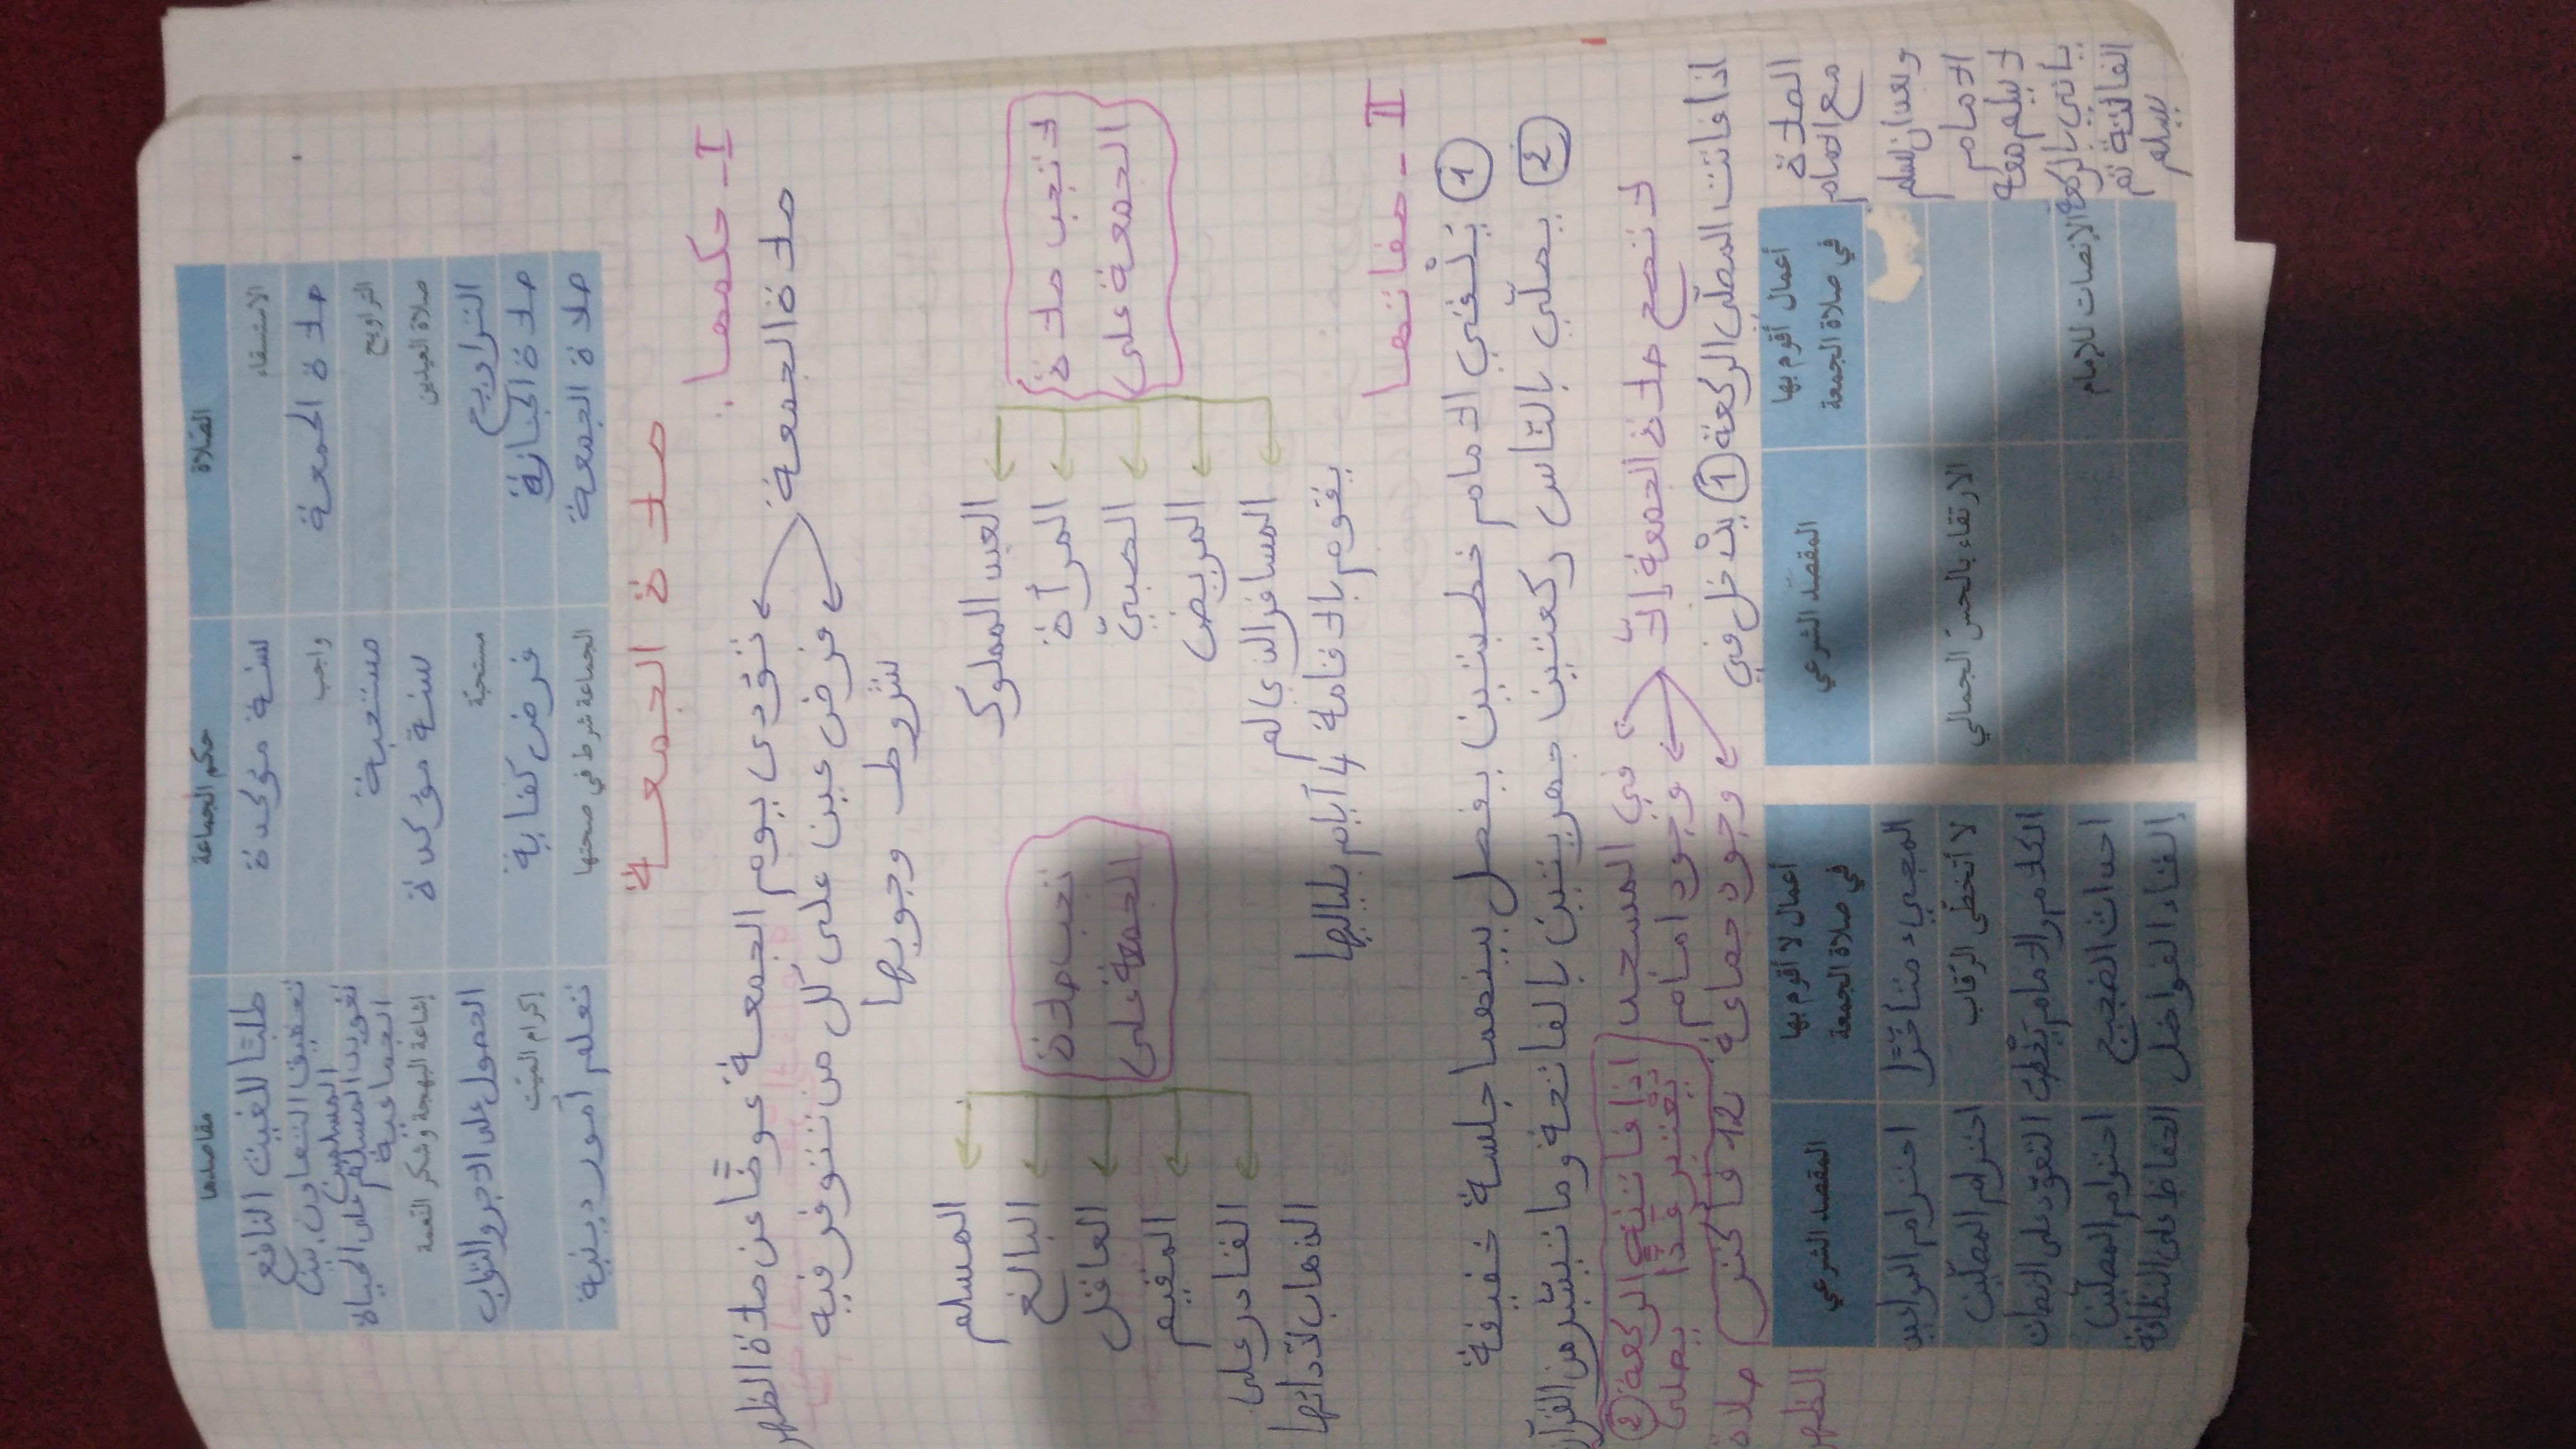 الصّلاة حكم الجماعة مقاصدها
الاستسقاء سنة مؤكدة طلبًا للغيث النافع
صلاة الجمعة واجب تعميق التعاون بين المسلمين
التراويح مستحبة تعويد المسلم على الحياة الجماعية
صلاة العيدين سنة مؤكدة إشاعة البهجة وشكر النّعمة
التراويح مستحبّة الحصول على الاجر والثواب
صلاة الجنازة فرض كفاية إكرام الميّت
صلاة الجمعة الجماعة شرط في صحتها تعلم أمور دينية
صلاة الجمعة
I- حكمها:
صلاة الجمعة تؤدى يوم الجمعة عوضًا عن صلاة الظهر
فرض عين على كل من تتوفر فيه
شروط وجوبها
لا تجب صلاة
الجمعة على
العبد المملوك
المرأة
الصبيّ
المريض
المسافر الذي لم
يقوم بالاقامة 4 أيام بلياليها
تجب صلاة
الجمعة على
المسلم
البالغ
العاقل
المقيم
القادر على
الذهاب لأدائها
II- صفاتها
① يلقي الامام خطبتين يفصل بينهما جلسة خفيفة
② يصلّي بالنّاس ركعتين جهريتين بالفاتحة وما تيسّر من القرآن
لا تصح صلاة الجمعة إلاّ في المسجد
وجود امام
وجود جماعة 12 فأكثر
اذا فاتت المصلّي الركعة ① يدخل في
الصلاة
مع الامام
وبعد ان يسلم
الامام
لا يسلم معه
يأتي بالركعة
الفائتة ثم
يسلم
② اذا فاتته الركعة
يصلي
صلاة
الظهر
أعمال أقوم بها في صلاة الجمعة المقصد الشرعي
الارتقاء بالحسّ الجمالي
الإنصات للإمام
أعمال لا أقوم بها في صلاة الجمعة المقصد الشرعي
المجيء متأخّرا احترام المواعيد
لا أتخطّى الرّقاب احترام المصلّين
الكلام والامام يخطب التعوّد على الانصات
احداث الضجيج احترام المصلّين
إلقاء الفواضل الحفاظ على النظافة